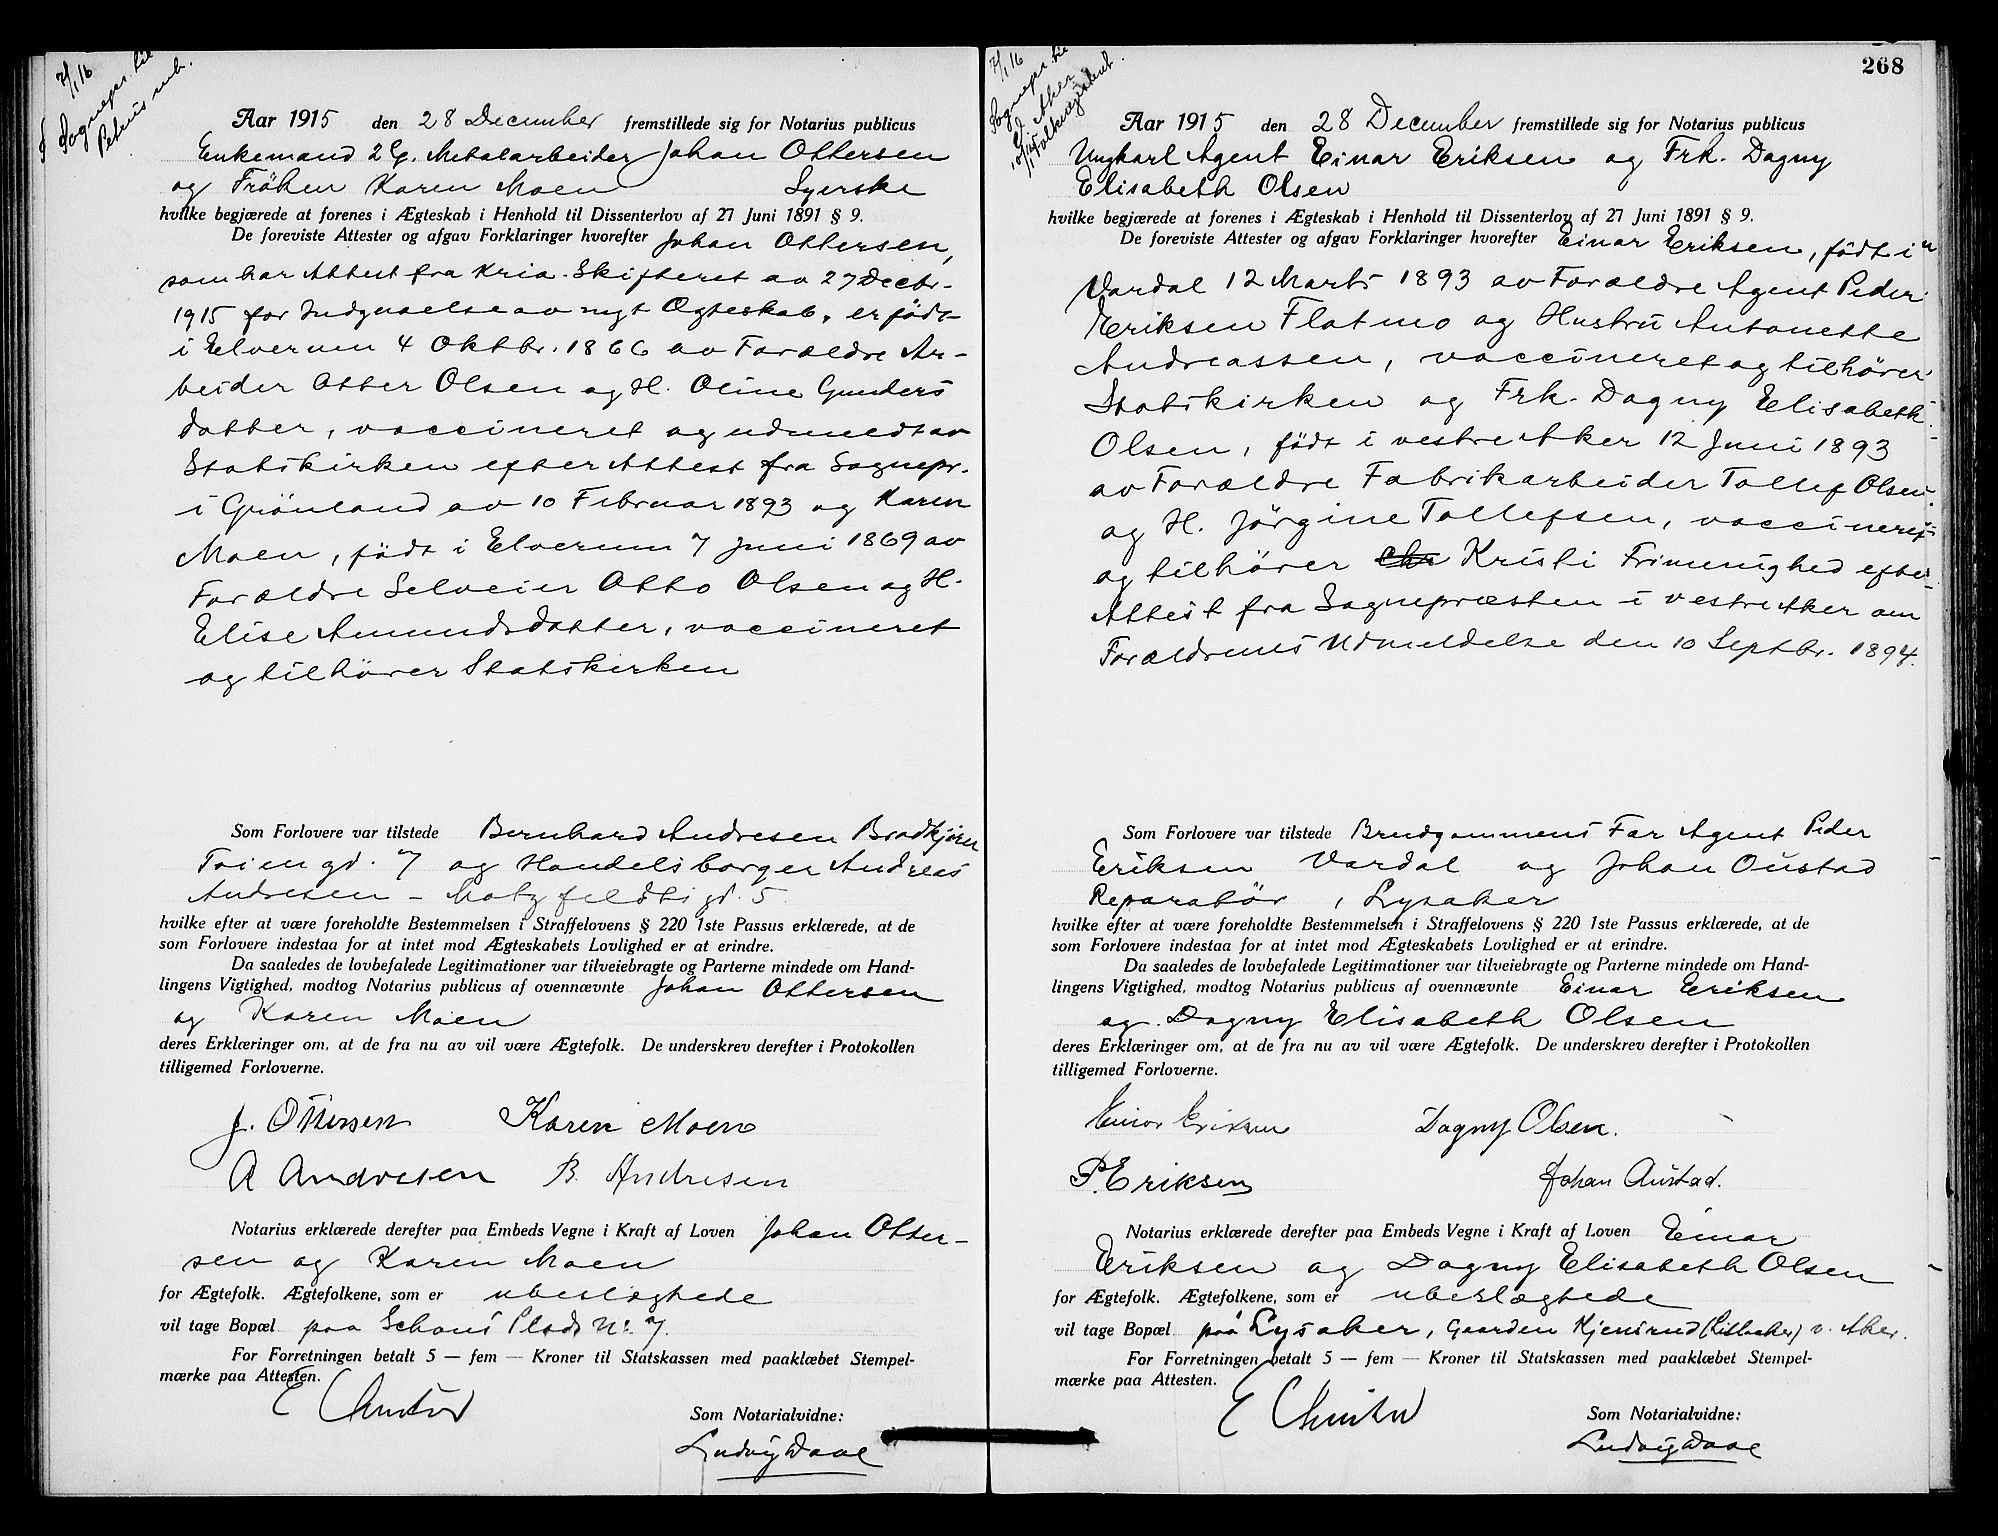 7/1 16
Sognepr. til
Petrus mb.
Aar 1915 den 28 December fremstillede sig for Notarius publicus
Enkemand 2 Eg. Metalarbeider Johan Ottersen
og Fröken Karen Moen Syerske
hvilke begjærede at forenes i Ægteskab i Henhold til Dissenterlov af 27 Juni 1891 § 9.
De foreviste Attester og afgav Forklaringer hvorefter Johan Ottersen,
som har Attest fra Kria. Skifteret av 27 Decbr.
1915 for Indgaaelse av nyt Ægteskab, er födt
i Elverum 4 Oktbr. 1866 av Forældre Ar-
beider Otter Olsen og H. Oline Gunders
datter, vaccineret og udmeldt av
Statskirken efter Attest fra Sognepr.
i Grönland av 10 Februar 1893 og Karen
Moen, födt i Elverum 7 Juni 1869 av
Forældre Selveier Otto Olsen og H.
Elise Amundsdatter, vaccineret
og tilhörer Statskirken
Som Forlovere var tilstede Bernhard Andresen Brödkjörer
Töiengd. 7 og Handelsborger Andreas
Andresen - Motzfeldtsgd. 5.
hvilke efter at være foreholdte Bestemmelsen i Straffelovens § 220 1ste Passus erklærede, at de
som Forlovere indestaa for at intet mod Ægteskabets Lovlighed er at erindre.
Da saaledes de lovbefalede Legitimationer var tilveiebragte og Parterne mindede om Hand-
lingens Vigtighed, modtog Notarius publicus af ovennævnte Johan Ottersen
og Karen Moen
deres Erklæringer om, at de fra nu av vil være Ægtefolk. De underskrev derefter i Protokollen
tilligemed Forloverne.
J. Ottersen Karen Moen
A Andresen B. Andresen
Notarius erklærede derefter paa Embeds Vegne i Kraft af Loven Johan Otter-
sen og Karen Moen
for Ægtefolk. Ægtefolkene, som er ubeslægtede
vil tage Bopæl paa Schous Plads No. 7.
For Forretningen betalt 5 — fem — Kroner til Statskassen med paaklæbet Stempel-
mærke paa Attesten.
E
Som Notarialvidne:
Ludvig Daae
268
7/1 16
Sognepr. til
Aker
Folkeregisteret.
Aar 1915 den 28 December fremstillede sig for Notarius publicus
Ungkarl Agent Einar Eriksen og Frk. Dagny
Elisabeth Olsen
hvilke begjærede at forenes i Ægteskab i Henhold til Dissenterlov af 27 Juni 1891 § 9.
De foreviste Attester og afgav Forklaringer hvorefter Einar Eriksen, födt i
Vardal 12 Marts 1893 av Forældre Agent Peder
Eriksen Flatmo og Hustru Antonette
Andreassen, vaccineret og tilhörer
Statskirken og Frk. Dagny Elisabeth
Olsen, födt i vestre Aker 12 Juni 1893
av Forældre Fabrikarbeider Tollef Olsen
og H. Jörgine Tollefsen, vaccineret
og tilhörer Kristi Frimenighed efter
Attest fra Sognepræsten i vestre Aker om
Forældrenes Udmeldelse den 10 Septbr. 1894.
Som Forlovere var tilstede Brudgommens Far Agent Peder
Eriksen Vardal og Johan Oustad
Reparatör, Lysaker
hvilke efter at være foreholdte Bestemmelsen i Straffelovens § 220 1ste Passus erklærede, at de
som Forlovere indestaa for at intet mod Ægteskabets Lovlighed er at erindre.
Da saaledes de lovbefalede Legitimationer var tilveiebragte og Parterne mindede om Hand-
lingens Vigtighed, modtog Notarius publicus af ovennævnte Einar Eriksen
og Dagny Elisabeth Olsen
deres Erklæringer om, at de fra nu av vil være Ægtefolk. De underskrev derefter i Protokollen
tilligemed Forloverne.
Einar Eriksen Dagny Olsen.
P. Eriksen Johan Austad.
Notarius erklærede derefter paa Embeds Vegne i Kraft af Loven Einar
Eriksen og Dagny Elisabeth Olsen
for Ægtefolk. Ægtefolkene, som er ubeslægtede
vil tage Bopæl på Lysaker, Gaarden Kjensrud (Lilleaker) v. Aker.
For Forretningen betalt 5 — fem — Kroner til Statskassen med paaklæbet Stempel-
mærke paa Attesten.
E
Som Notarialvidne:
Ludvig Daae